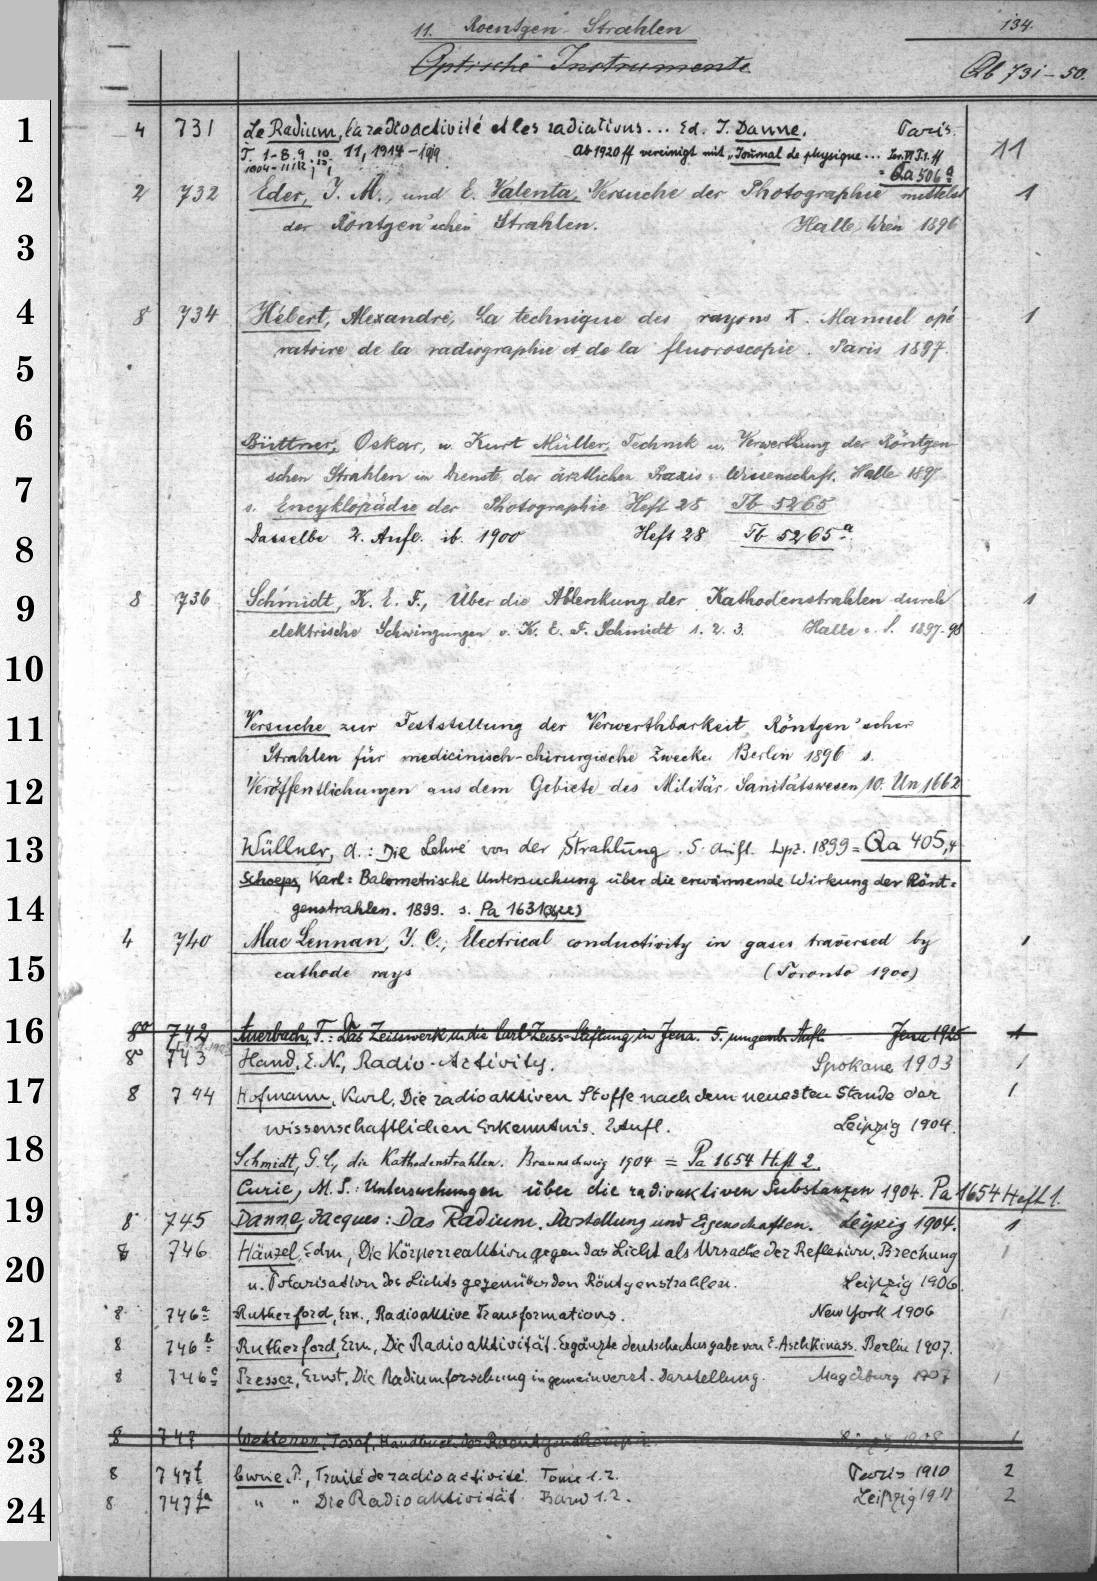 11. Roentgen Strahlen
134.
Optische Instrumente
Qb 731-50.
1
4 731 Le Radium, la radioactivité et les radiations... Ed. J. Danne. Paris. 11
T. 1-8. 9. 10 11, 1914-1919 ab 1920 ff vereinigt mit "Journal de physique... Ser. VI T.1. ff
1904-11/12
= Qa 506 a
2
2 732 Eder, J. M., und E. Valenta, Versuche der Photographie mittelst 1
der Röntgen'schen Strahlen. Halle, Wien 1896
3
4
8 734 Hébert, Alexandre, La technique des rayons X. Manuel opé 1
ratoire de la radiographie et de la fluoroscopie. Paris 1897.
5
6
Büttner, Oskar, u. Kurt Müller, Technik u. Verwerthung der Röntgen
schen Strahlen im Dienste der ärztlichen Praxis u. Wissenschaft. Halle 1897
7
s. Encyklopädie der Photographie Heft 28 Tb 5265
8
Dasselbe 2. Aufl. ib. 1900 Heft 28 Tb 5265 a
9
8 736 Schmidt, K. E. F., Über die Ablenkung der Kathodenstrahlen durch 1
elektrische Schwingungen v. K. E. F. Schmidt 1. 2. 3. Halle a. S. 1897-98
10
11
Versuche zur Feststellung der Verwerthbarkeit Röntgen'scher
Strahlen für medicinisch-chirurgische Zwecke Berlin 1896 s.
12
Veröffentlichungen aus dem Gebiete des Militär-Sanitätswesen 10. Un 1662
13
Wüllner, A.: Die Lehre von der Strahlung. 5. Aufl. Lpz. 1899 = Qa 405,4
Schoeps, Karl: Bolometrische Untersuchung über die erwärmende Wirkung der Rönt=
14
genstrahlen. 1899. s. Pa 1631
4 740 Mac Lennan, J. C., Electrical conductivity in gases traversed by 1
15
cathode rays (Toronto 1900)
16
8° 742 Auerbach, F.: Das Zeisswerk u. die Carl-Zeiss-Stiftung in Jena. 5., umgearb. Aufl. Jena 1925 1
8° 743 Hand, E. N., Radio-Activity. Spokane 1903 1
17
8 744 Hofmann, Karl, Die radioaktiven Stoffe nach dem neuesten Stande der 1
wissenschaftlichen Erkenntnis. 2 Aufl. Leipzig 1904.
18
Schmidt, G. C., die Kathodenstrahlen. Braunschweig 1904 = Pa 1654 Heft 2.
Curie, M. S.: Untersuchungen über die radioaktiven Substanzen 1904. Pa 1654 Heft 1.
19
8 745 Danne, Jacques: Das Radium. Darstellung und Eigenschaften. Leipzig 1904. 1
8 746 Hänzel, Edm, Die Körperreaktion gegen das Licht als Ursache der Reflexion, Brechung 1
20
u. Polarisation des Lichts gegenüber den Röntgenstrahlen. Leipzig 1906.
8 746 a Rutherford, Ern., Radioaktive Transformations. New York 1906
21
8 746 b Rutherford, Ern., Die Radioaktivität. Ergänzte deutsche Ausgabe von E. Aschkinass. Berlin 1907.
22
8 746 c Presser, Ernst, Die Radiumforschung in gemeinverst. Darstellung. Magdeburg 1907 1
23
8 747 Wetterer, Josef, Handbuch der Roentgentherapie. 1908 1
8 747 f Curie, P., Traité de radioactivité. Tome 1. 2. Paris 1910 2
24
8 747 fa " " Die Radioaktivität Band 1. 2. Leipzig 1911 2